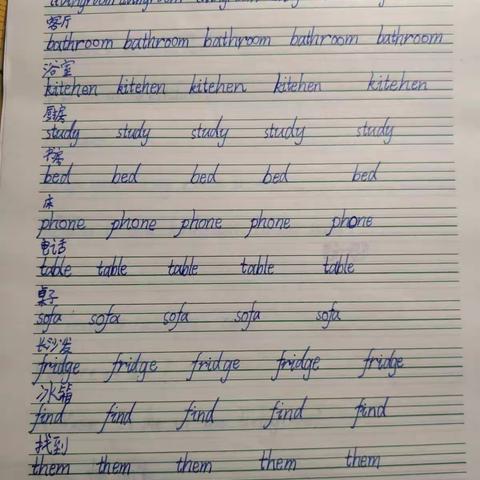 livingroom livingroom
客厅
bathroom bathroom bathroom bathroom bathroom
浴室
kitchen kitchen kitchen kitchen kitchen
厨房
study study study study study
书房
bed bed bed bed bed
床
phone phone phone phone phone
电话
table table table table table
桌子
sofa sofa sofa sofa sofa
长沙发
fridge fridge fridge fridge fridge
冰箱
find find find find find
找到
them them them them them